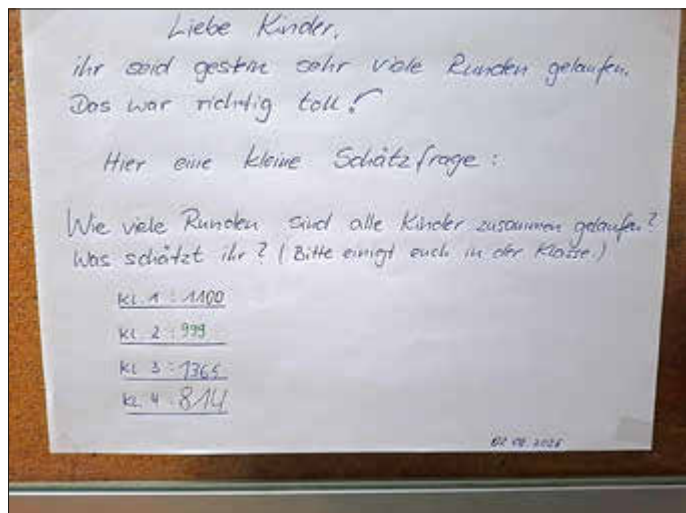 Liebe Kinder,
ihr seid gestern sehr viele Runden gelaufen.
Das war richtig toll!
Hier eine kleine Schätzfrage:
Wie viele Runden sind alle Kinder zusammen gelaufen?
Was schätzt ihr? (Bitte einigt euch in der Klasse.)
Kl. 1: 1100
Kl. 2: 999
Kl. 3: 1365
Kl. 4: 814